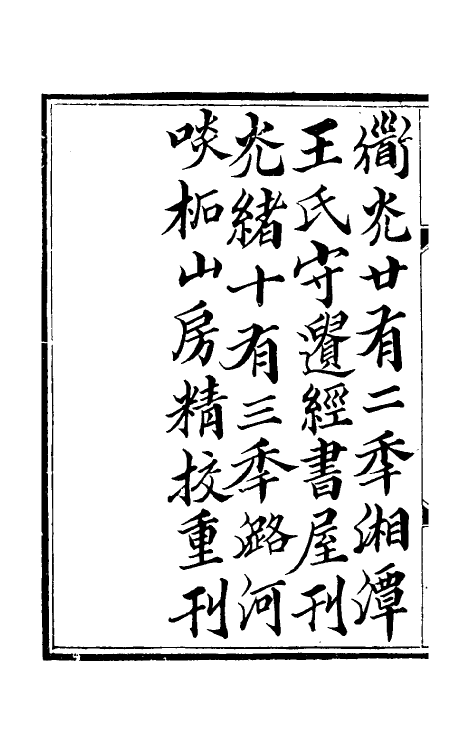 衟炗廿有二秊湘潭
王氏守遺經書屋刊
炗緒十有三秊潞河
啖柘山房精挍重刊